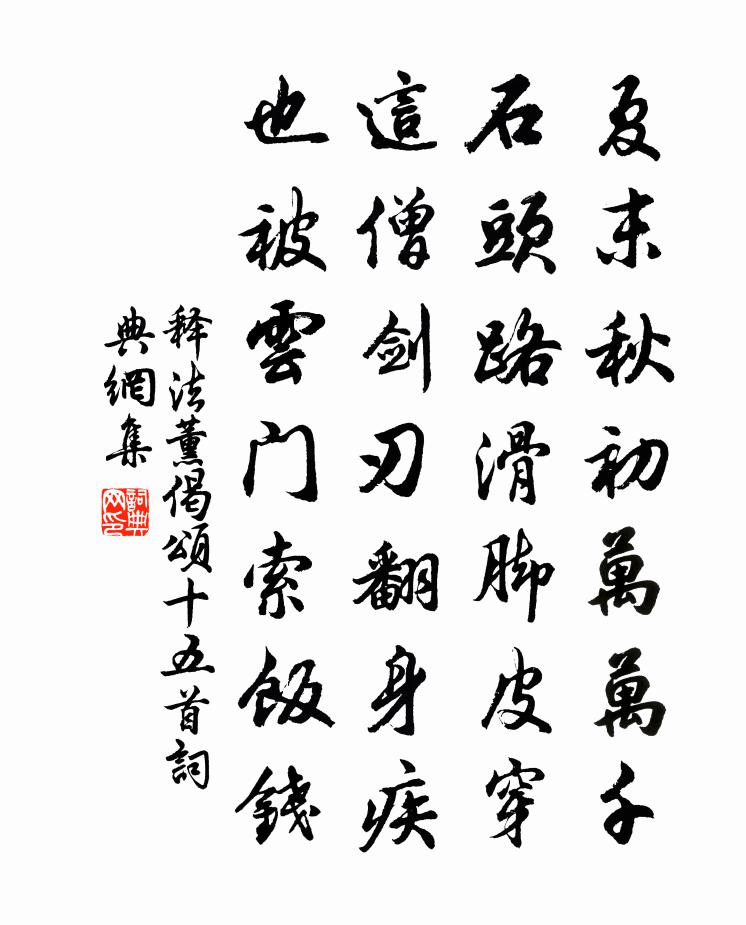 夏末秋初萬萬千
石頭路滑脚皮穿
這僧劍刃翻身疾
也被雲门索飯錢
释法薰偈頌十五首詞
典網集
詞典
网印